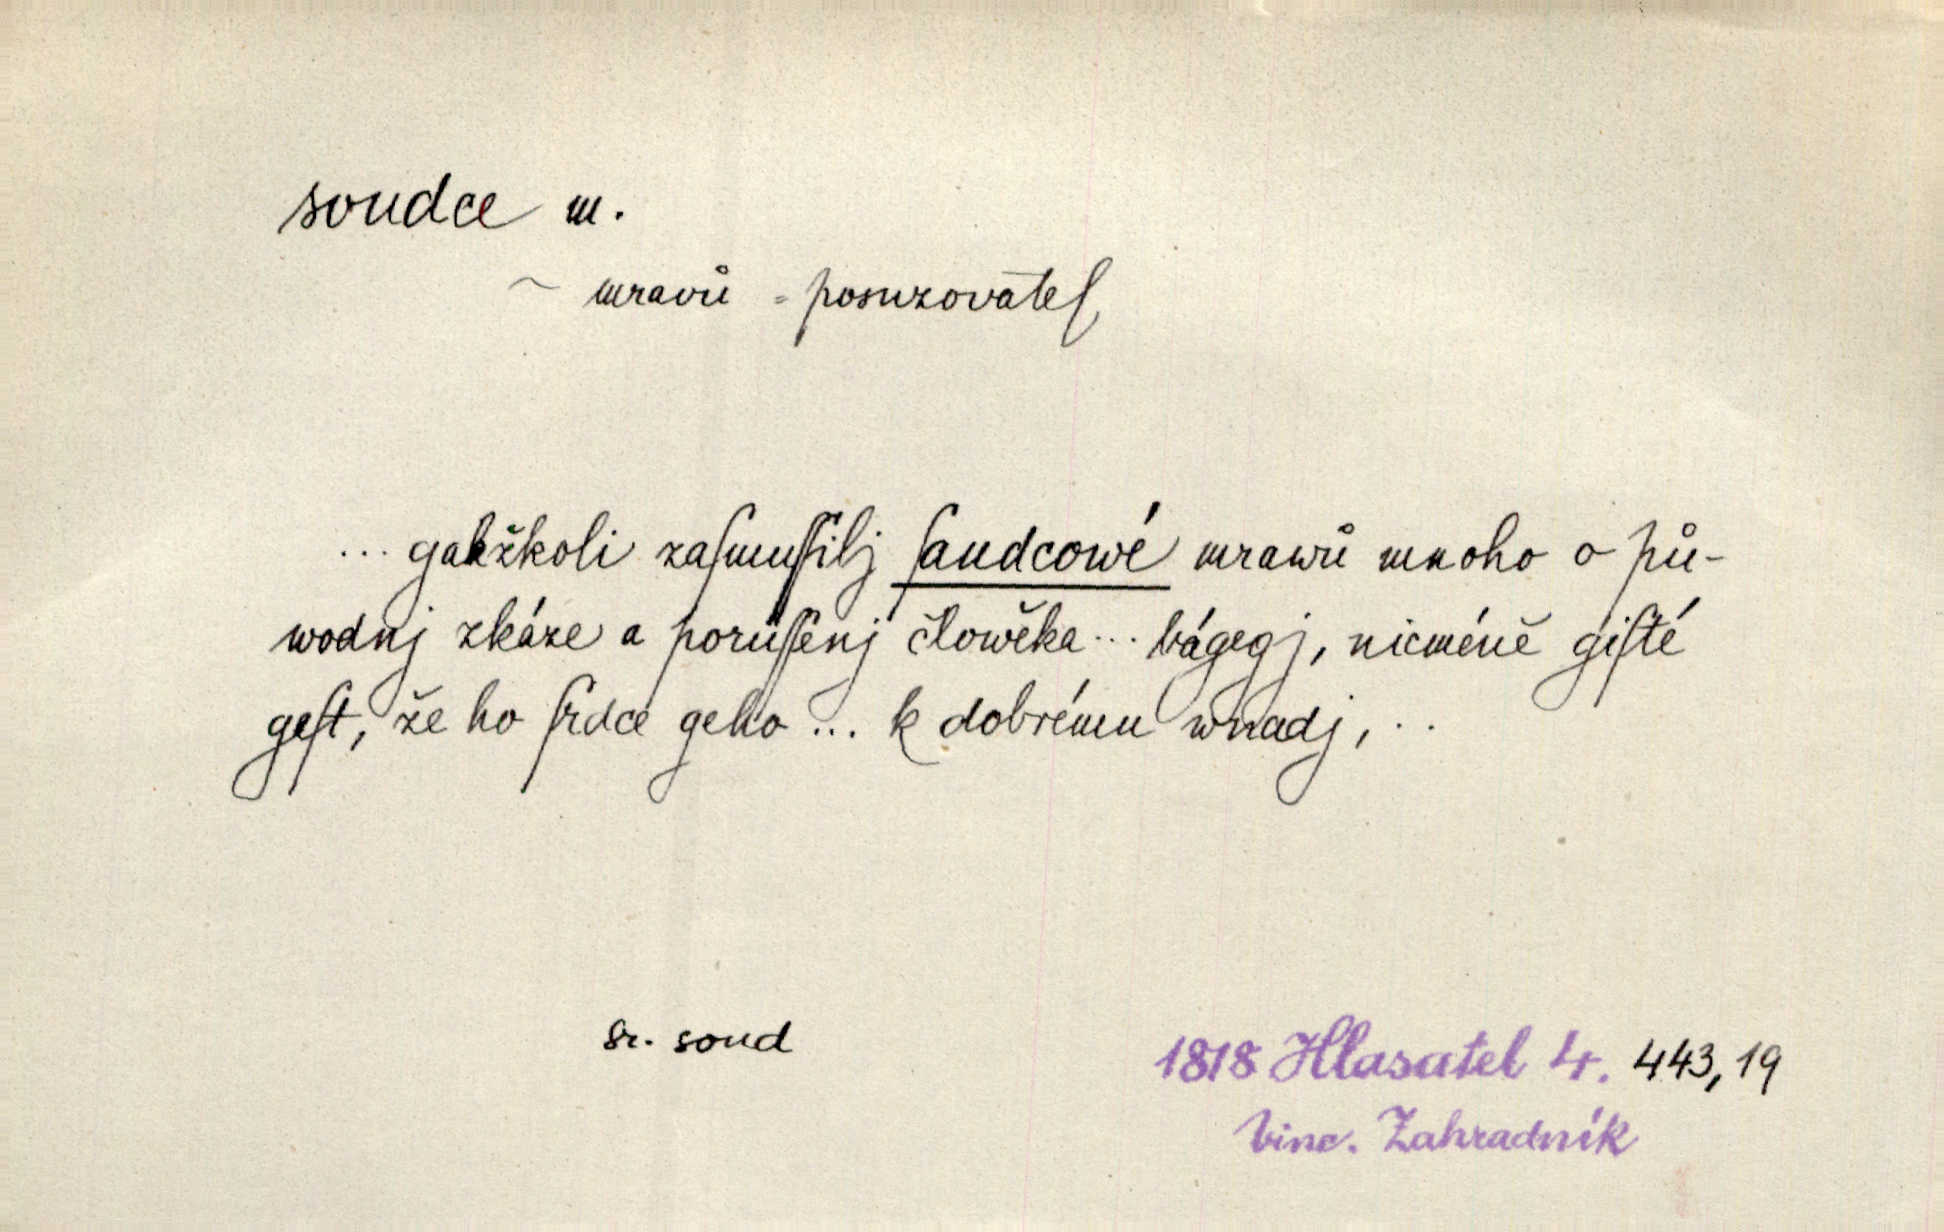 soudce m.
~ mravů = posuzovatel
... gakžkoli zaſmuſſilj ſaudcowé mrawů mnoho o pů-
wodnj zkáze a poruſſenj člowěka ... bágegj, nicméně giſté
geſt, že ho ſrdce geho ... k dobrému wnadj, ..
Sr. soud
1818 Hlasatel 4. 443, 19
Vinc. Zahradník